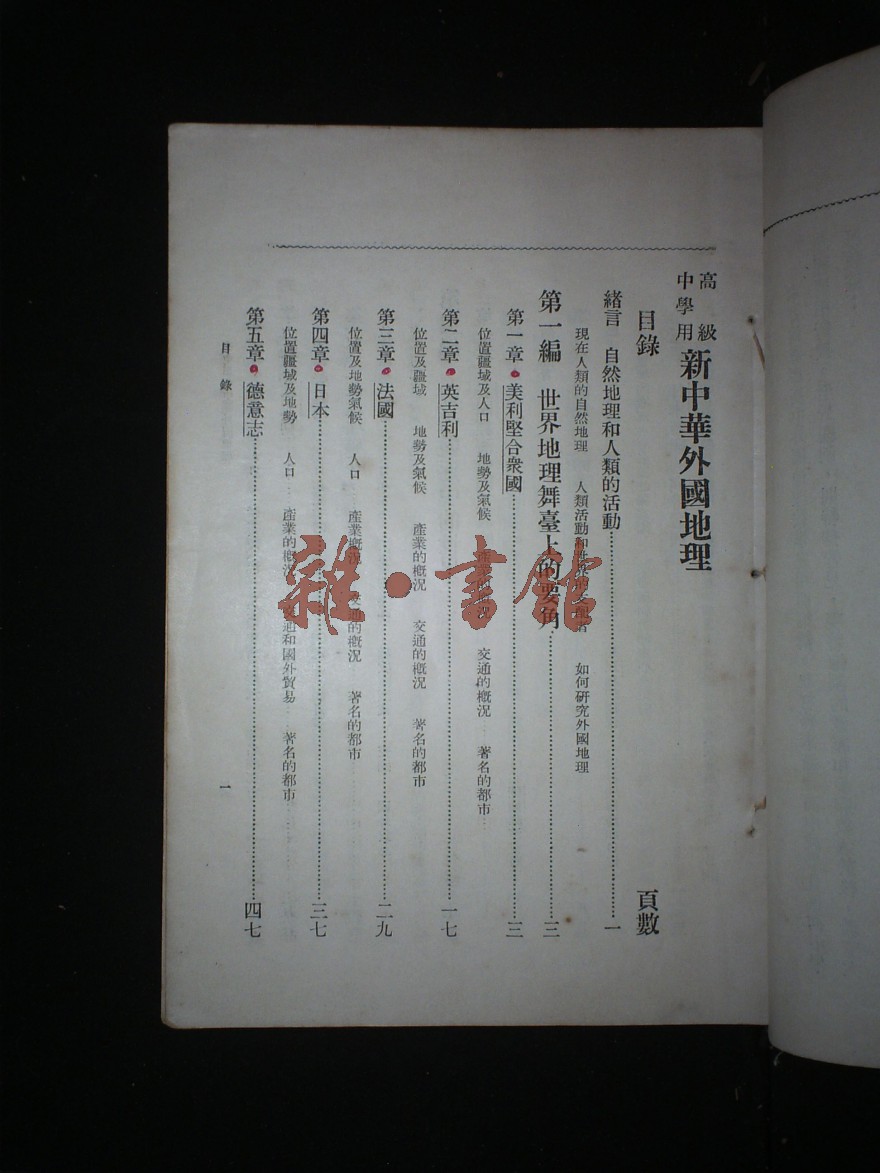 高級中學用 新中華外國地理
目錄 頁數
緒言 自然地理和人類的活動 一
現在人類的自然地理 人類活動和世界地 如何研究外國地理
第一編 世界地理舞臺上的要角 三
第一章 美利堅合衆國 三
位置疆域及人口 地勢及氣候 產業的概況 交通的概況 著名的都市
第二章 英吉利 一七
位置及疆域 地勢及氣候 產業的概況 交通的概況 著名的都市
第三章 法國 二九
位置及地勢氣候 人口 產業概況 交通的概況 著名的都市
第四章 日本 三七
位置疆域及地勢 人口 產業的概況 交通和國外貿易 著名的都市
第五章 德意志 四七
目錄 一
雜·書館